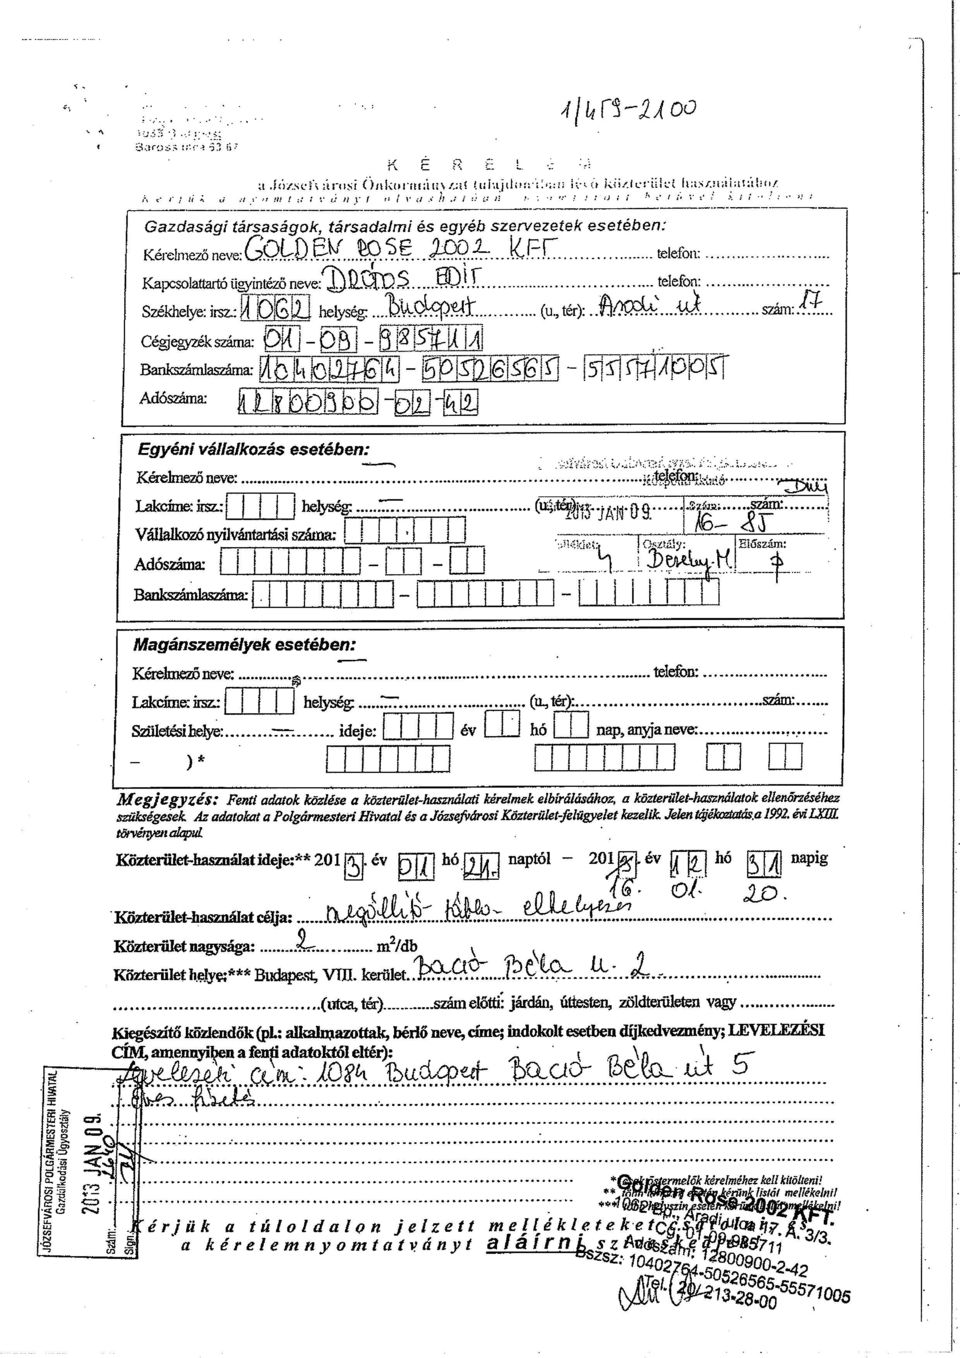 1/459-2100
Baross utca 63-67
KÉRELEM
a Józsefvárosi Önkormányzat tulajdonában lévő közterület használatához
Gazdasági társaságok, társadalmi és egyéb szervezetek esetében:
Kérelmező neve: GOLDEN ROSE 2002 KFT telefon:
Kapcsolattartó ügyintéző neve: DRÓTOS EDIT telefon:
Székhelye: irsz.: 1062 helység: Budapest (u., tér): Aradi út szám: 17
Cégjegyzék száma: 01 - 09 - 985711
Bankszámlaszáma: 10402764 - 50526565 - 55571005
Adószáma: 12800900-2-42
Egyéni vállalkozás esetében:
Kérelmező neve: telefon:
Lakcíme: irsz.: helység: (u., tér): szám:
2013 JAN 09. Szám: 16-85
Vállalkozó nyilvántartási száma:
Osztály: Előszám:
Adószáma: - -
Bankszámlaszáma: - -
Magánszemélyek esetében:
Kérelmező neve: telefon:
Lakcíme: irsz.: helység: (u., tér): szám:
Születési helye: ideje: év hó nap, anyja neve:
- )*
Megjegyzés: Fenti adatok közlése a közterület-használati kérelmek elbírálásához, a közterület-használatok ellenőrzéséhez
szükségesek. Az adatokat a Polgármesteri Hivatal és a Józsefvárosi Közterület-felügyelet kezelik. Jelen tájékoztatás a 1992. évi LXIII.
törvényen alapul.
Közterület-használat ideje:** 2013. év 01 hó 21. naptól - 201 . év 12 hó 31 napig
16. 01. 20.
Közterület-használat célja: megállító tábla elhelyezés
Közterület nagysága: 2 m²/db
Közterület helye:*** Budapest, VIII. kerület Bacsó Béla u. 2
(utca, tér) szám előtti: járdán, úttesten, zöldterületen vagy
Kiegészítő közlendők (pl.: alkalmazottak, bérlő neve, címe; indokolt esetben díjkedvezmény; LEVELEZÉSI
CÍM, amennyiben a fenti adatoktól eltér):
Levelezési cím: 1084 Budapest Bacsó Béla út 5
Éves fizetés
JÓZSEFVÁROSI POLGÁRMESTERI HIVATAL
Gazdálkodási Ügyosztály
2013 JAN 09.
Szám:
Sign.
* Csak őstermelők kérelméhez kell kitölteni!
Golden Rose 2002 KFT.
1062 Bp., Aradi utca 17. A. 3/3.
Cg. 01-09-985711
Adószám: 12800900-2-42
Bszsz: 10402764-50526565-55571005
Tel. (20) 213-28-00
Kérjük a túloldalon jelzett mellékleteket csatolni, és
a kérelemnyomtatványt aláírni szíveskedjenek!